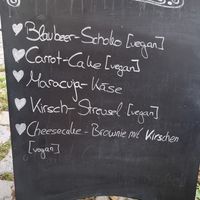 Blaubeer-Schoko [vegan]
Carrot-Cake [vegan]
Maracuja-Käse
Kirsch-Streusel [vegan]
Cheesecake-Brownie mit Kirschen
[vegan]